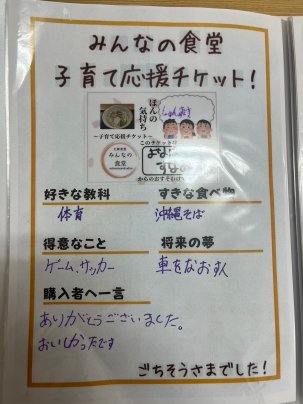 みんなの食堂
子育て応援チケット!
ほんの
気持ち
〜子育て応援チケット〜
このチケットは
みんなの
食堂
からのおすそわけ
好きな教科
すきな食べ物
体育
沖縄そば
得意なこと
将来の夢
ゲーム、サッカー
車をなおす人
購入者へ一言
ありがとうございました。
おいしかったです
ごちそうさまでした!